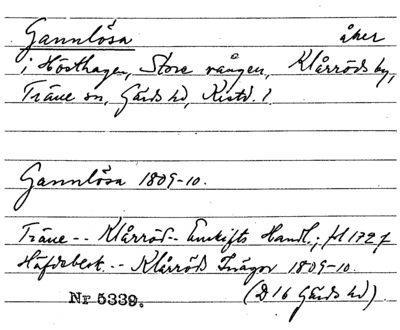 Gannlösa åker
i Hösthagen, Store vången, Klårröds by,
Träne sn, Gärds hd, Kristd. l.
Gannlösa 1809-10.
Träne -- Klårröd -- Enskifts Handl.;
Häfdebeskr. -- Klårröds Inägor 1809-10.
Nr 5339. (D 16 Gärds hd)